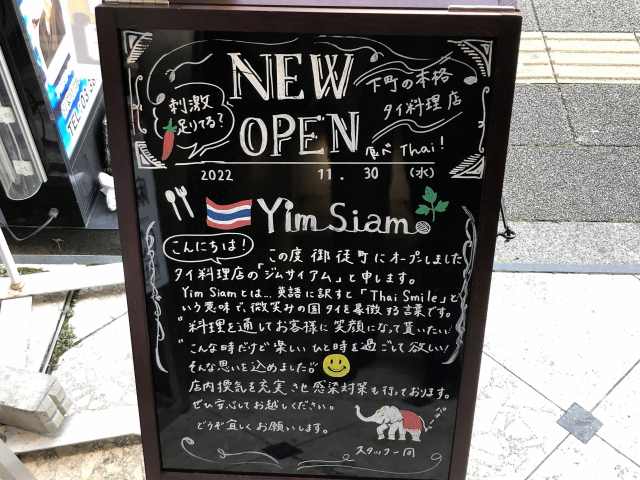 NEW OPEN
下町の本格
タイ料理店
刺激
足りてる?
食べ Thai!
2022 11. 30 (水)
Yim Siam
こんにちは!
この度 御徒町にオープンしました
タイ料理店の「ジムサイアム」と申します。
Yim Siamとは…英語に訳すと「Thai Smile」と
いう意味で、微笑みの国タイを象徴する言葉です。
"料理を通してお客様に笑顔になって貰いたい
こんな時だけど楽しいひと時を過ごして欲しい!
そんな思いを込めました。"
店内換気を充実させ感染対策も行っております。
ぜひ安心してお越しください。
どうぞ宜しくお願いします。
スタッフ一同